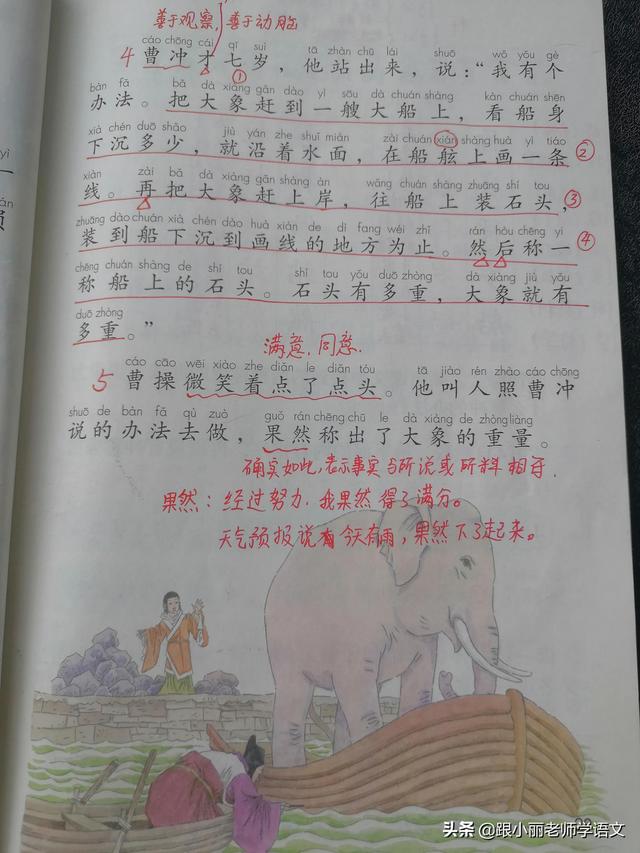 善于观察,善于动脑
cáo chōng cái qī suì tā zhàn chū lái shuō wǒ yǒu gè
4 曹冲才七岁，他站出来，说：“我有个
①
bàn fǎ bǎ dà xiàng gǎn dào yì sōu dà chuán shàng kàn chuán shēn
办法。把大象赶到一艘大船上，看船身
xià chén duō shǎo jiù yán zhe shuǐ miàn zài chuán xián shàng huà yì tiáo
下沉多少，就沿着水面，在船舷上画一条 ②
xiàn zài bǎ dà xiàng gǎn shàng àn wǎng chuán shàng zhuāng shí tou
线。再把大象赶上岸，往船上装石头， ③
zhuāng dào chuán xià chén dào huà xiàn de dì fang wéi zhǐ rán hòu chēng yi
装到船下沉到画线的地方为止。然后称一 ④
chēng chuán shàng de shí tou shí tou yǒu duō zhòng dà xiàng jiù yǒu
称船上的石头。石头有多重，大象就有
duō zhòng
多重。”
满意,同意.
cáo cāo wēi xiào zhe diǎn le diǎn tóu tā jiào rén zhào cáo chōng
5 曹操微笑着点了点头。他叫人照曹冲
shuō de bàn fǎ qù zuò guǒ rán chēng chū le dà xiàng de zhòng liàng
说的办法去做，果然称出了大象的重量。
确实如此,表示事实与所说或所料相符.
果然：经过努力,我果然得了满分。
天气预报说有今天有雨，果然下了起来。
头条 @跟小丽老师学语文